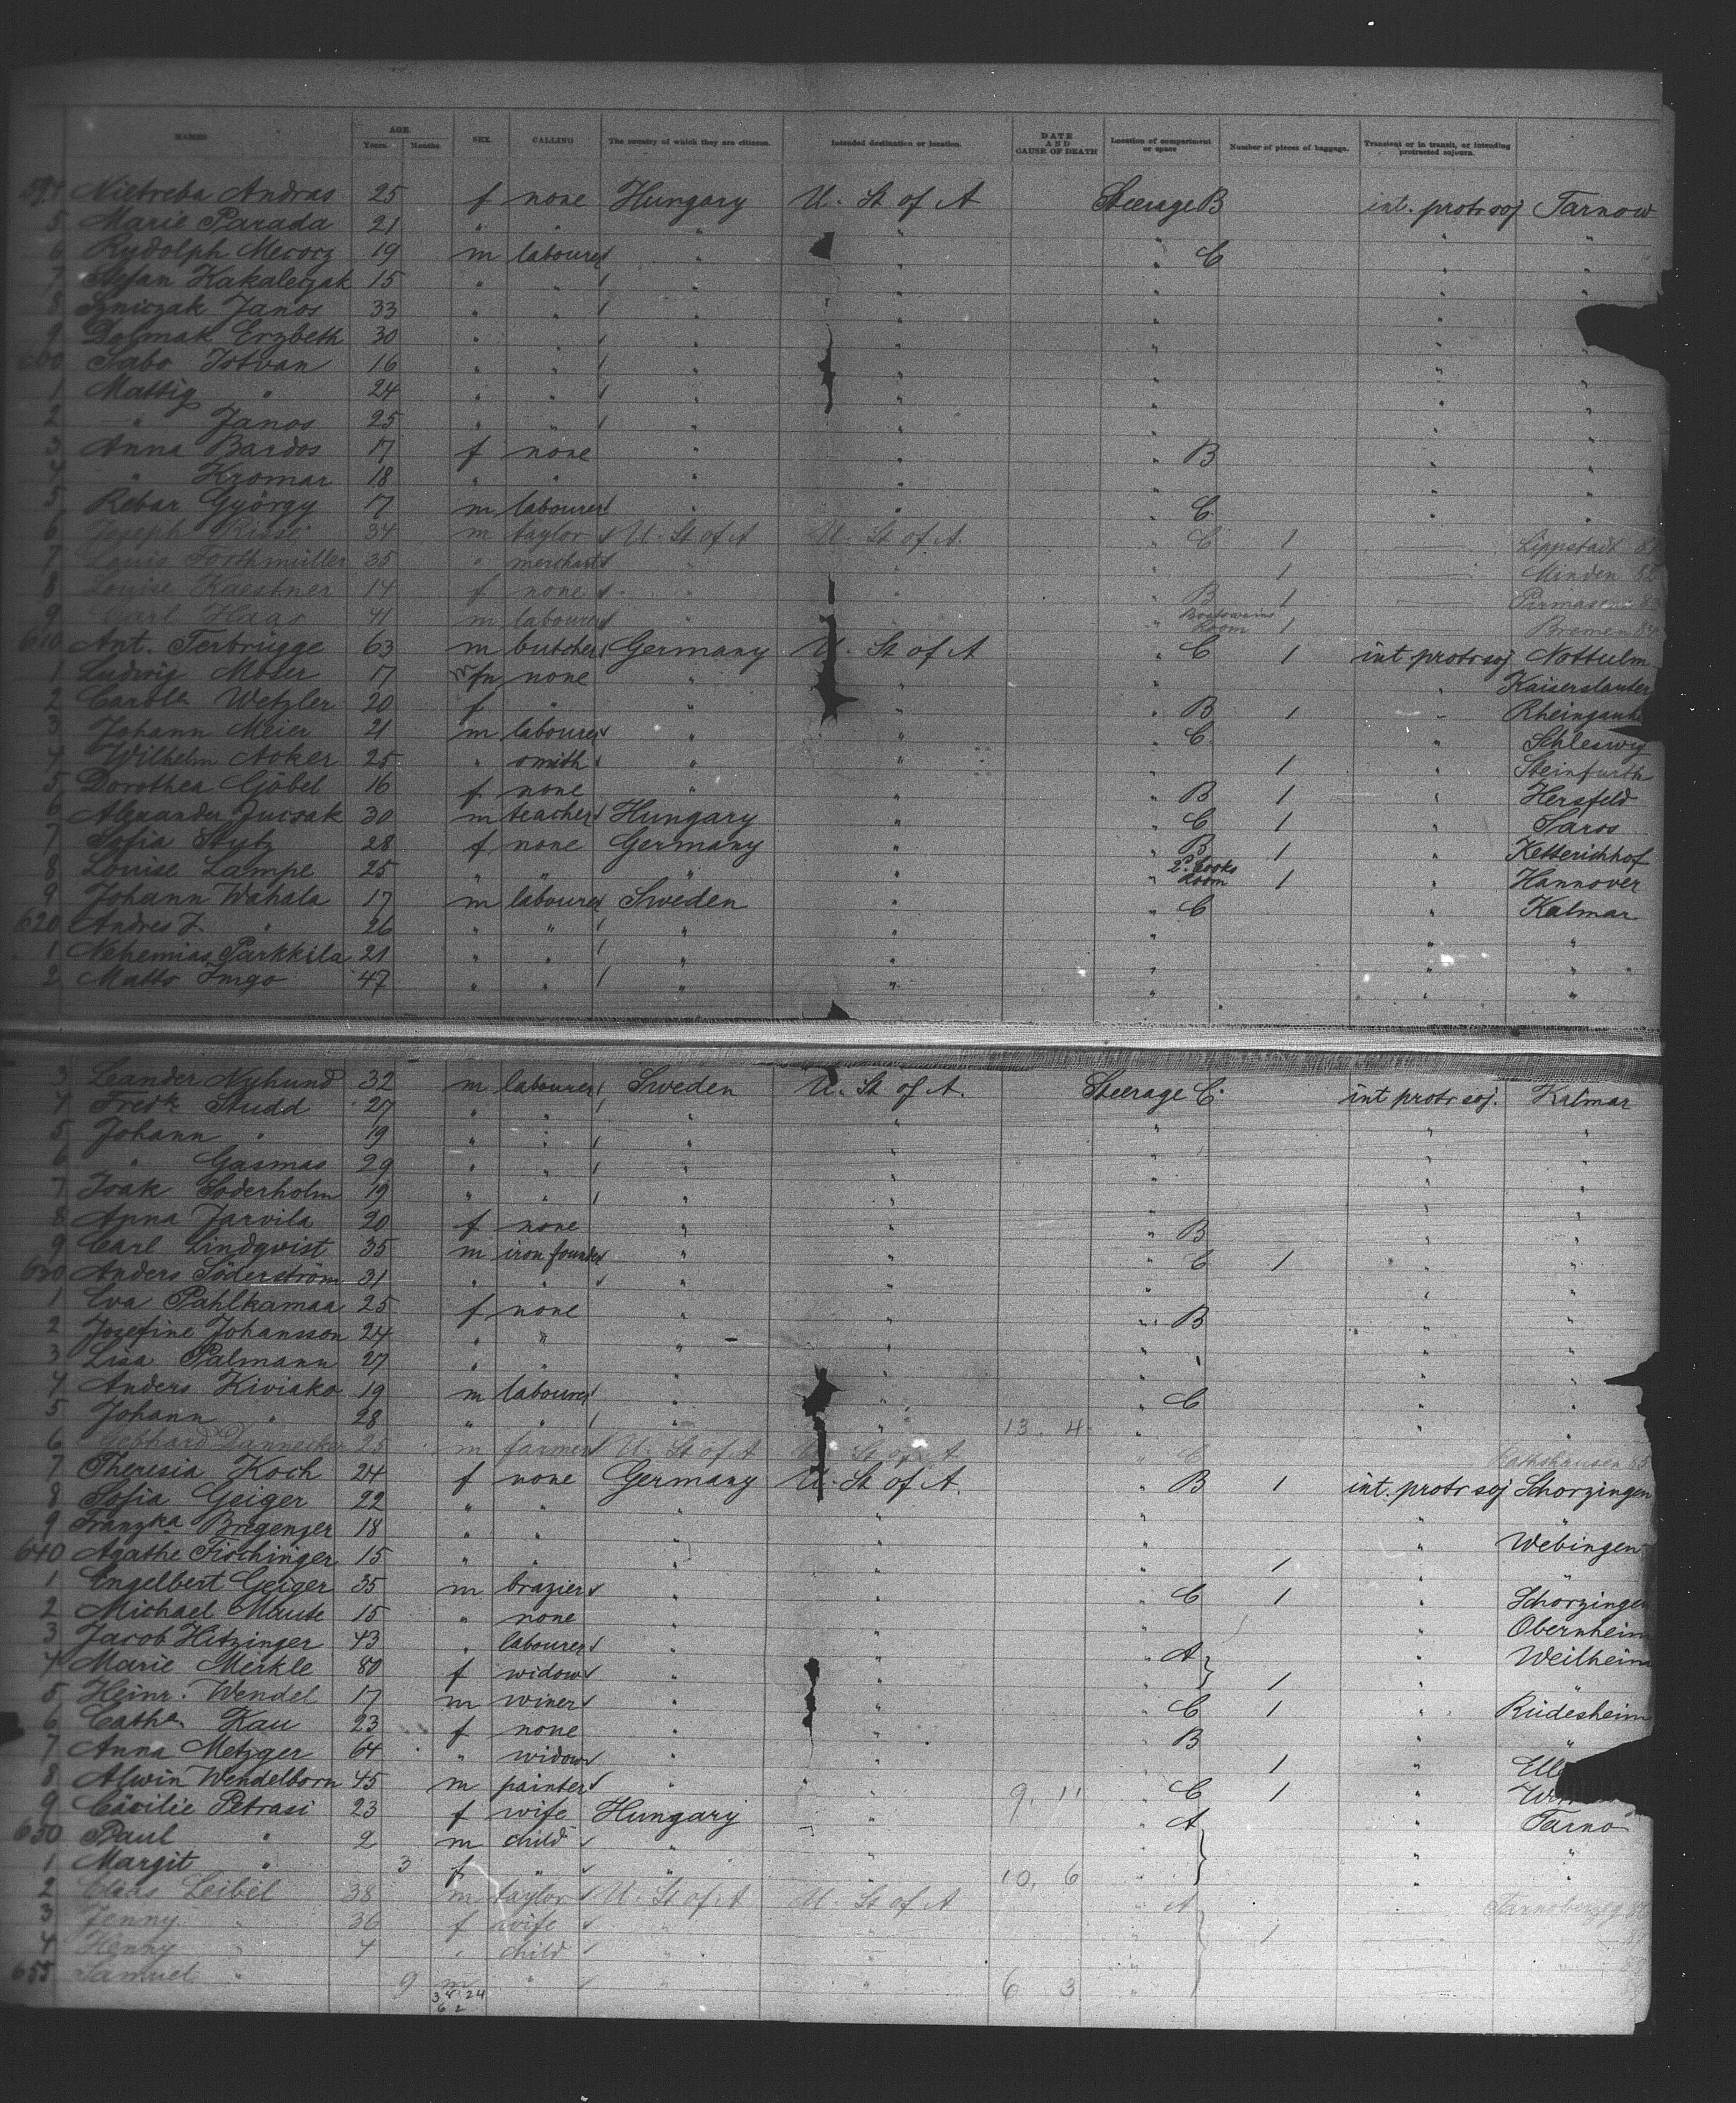 NAMES AGE. Years. Months. SEX. CALLING The country of which they are citizens. Intended destination or location. DATE AND CAUSE OF DEATH Location of compartment or space Number of pieces of baggage. Transient or in transit, or intending protracted sojourn.
Nietreba Andras 25 f none Hungary U. St of A Steerage B int. protr soj Tarnow
5 Marie Parada 21 " " " " " " "
6 Rudolph Mecorz 19 m labourer " " " C " "
7 Stefan Kakaletzak 15 " " " " " " "
8 Janos 33 " " " " " " "
9 Dolmak Erzbeth 30 " " " " " " "
600 Sabo Istvan 16 " " " " " " "
1 Mattig " 24 " " " " " " "
2 " Janos 25 " " " " " " "
3 Anna Bardos 17 f none " " " B " "
4 " Kromar 18 " " " " " " "
5 Rebar György 17 m labourer " " " C " "
6 Joseph Risse 34 m taylor U. St of A U. St of A. " C 1 — Lippstadt
7 Louis Forthmüller 35 " merchant " " " 1 — Minden
8 Louise Kaestner 14 f none " " " B 1 — Pirmasens
9 Carl Haas 41 m labourer " " " Room 1 — Bremen
610 Ant. Terbrügge 63 m butcher Germany U. St of A " C 1 int protr soj Nottuln
1 Ludwig Moser 17 m none " " " " Kaiserslauter
2 Carolª Wetzler 20 f " " " " B 1 " Rheingauhe
3 Johann Meier 21 m labourer " " " C " Schleswig
4 Wilhelm Acker 25 " smith " " " 1 " Steinfurth
5 Dorothea Göbel 16 f none " " " B 1 " Hersfeld
6 Alexander Jucsak 30 m teacher Hungary " " C 1 " Saros
7 Sofia Stutz 28 f none Germany " " B 1 " Ketterichhof
8 Louise Lampe 25 " " " " " 2ª Cooks Room 1 " Hannover
9 Johann Wahala 17 m labourer Sweden " " C " Kalmar
620 Andres J. " 26 " " " " " " "
1 Nehemias Parkkila 21 " " " " " " "
2 Matts Ingo 47 " " " " " " "
3 Leander Nyhund 32 m labourer Sweden U. St of A. Steerage C. int protr soj. Kalmar
4 Fredk Studd 27 " " " " " " "
5 Johann " 19 " " " " " " "
6 " Gasmas 29 " " " " " " "
7 Isak Söderholm 19 " " " " " " "
8 Anna Jarvila 20 f none " " " B " "
9 Carl Lindqvist 35 m iron founder " " " C 1 " "
630 Anders Söderström 31 " " " " " " "
1 Eva Pahlkamaa 25 f none " " " B " "
2 Jozefine Johansson 24 " " " " " " "
3 Lisa Palmann 27 " " " " " " "
4 Anders Kiviako 19 m labourer " " " C " "
5 Johann " 28 " " " " 13. 4. " " "
6 Gebhard Dannecker 25 m farmer U. St of A U. St of A " C Rathshausen 85
7 Theresia Koch 24 f none Germany U. St of A. " B 1 int. protr soj Schorzingen
8 Sofia Geiger 22 " " " " " " "
9 Franzka Bregenzer 18 " " " " " " Webingen
640 Agathe Fischinger 15 " " " " " 1 " "
1 Engelbert Geiger 35 m brazier " " " C 1 " Schorzingen
2 Michael Maute 15 " none " " " " Obernheim
3 Jacob Hitzinger 43 " labourer " " " A " Weilheim
4 Marie Merkle 80 f widow " " " 1 "
5 Heinr. Wendel 17 m winer " " " C 1 " Rüdesheim
6 Cathª Kau 23 f none " " " B " "
7 Anna Metzger 64 " widow " " " 1 " Ell
8 Alwin Wendelborn 45 m painter " " 9. 11 " C 1 "
9 Cäcilie Petrasi 23 f wife Hungary " " A " Tarno
650 Paul " 2 m child " " " " "
1 Margit " 3 f " " " 10. 6 " " "
2 Elias Leibel 38 m taylor U. St of A U. St of A " A
3 Jenny " 36 f wife " " " 1 —
4 Henny " 4 " child " " "
655 Samuel " 9 m " " " 6 3 "
3 8 24
6 2